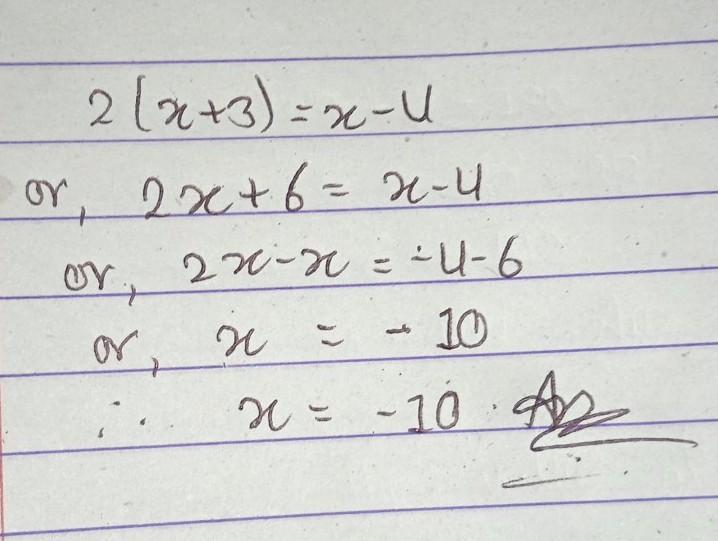 2(x+3)=x-4
or, 2x+6= x-4
or, 2x-x = -4-6
or, x = - 10
∴ x = -10. Ans